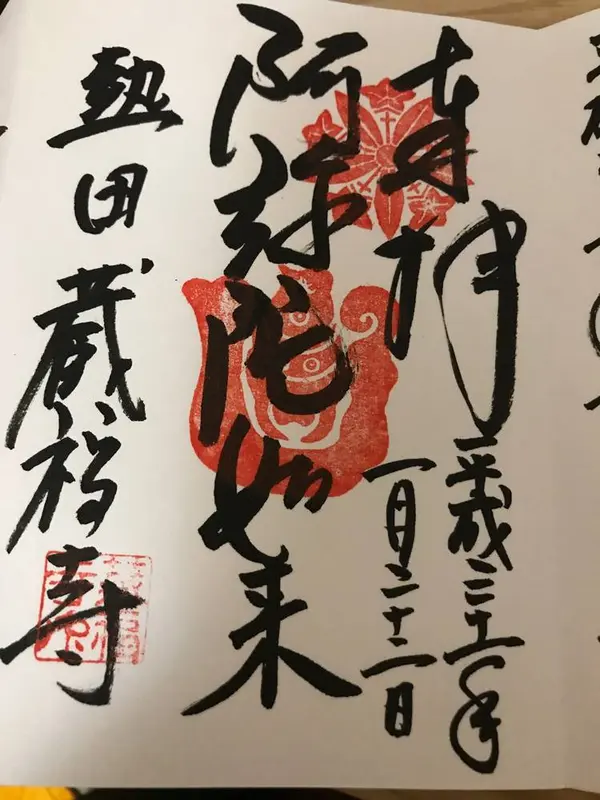 奉拝
平成三十一年
一月二十二日
阿弥陀如来
熱田蔵福寺